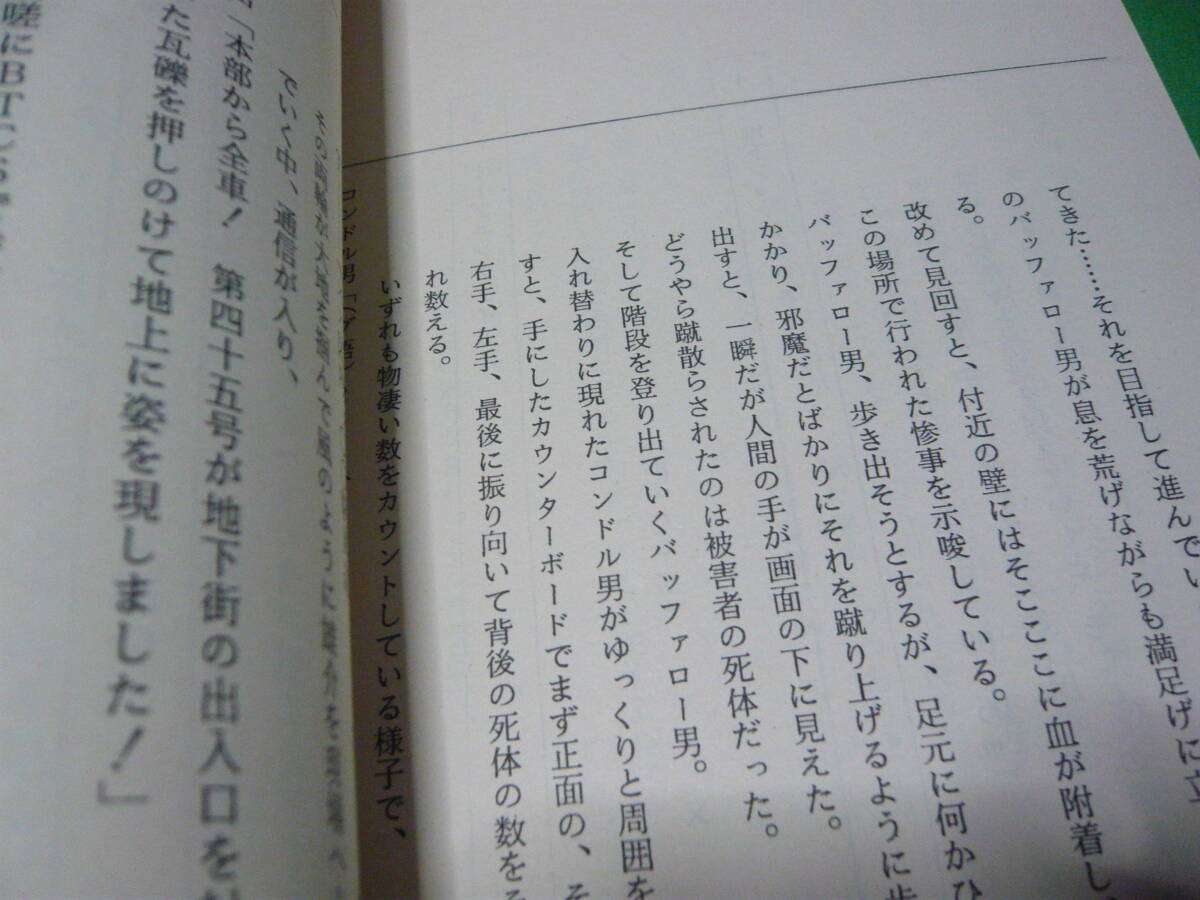 てきた……それを目指して進んでい
のバッファロー男が息を荒げながらも満足げに立
る。
改めて見回すと、付近の壁にはそこここに血が附着し、
この場所で行われた惨事を示唆している。
バッファロー男、歩き出そうとするが、足元に何かひ
かかり、邪魔だとばかりにそれを蹴り上げるように歩
出すと、一瞬だが人間の手が画面の下に見えた。
どうやら蹴散らされたのは被害者の死体だった。
そして階段を登り出ていくバッファロー男。
入れ替わりに現れたコンドル男がゆっくりと周囲を
すと、手にしたカウンターボードでまず正面の、そ
右手、左手、最後に振り向いて背後の死体の数をそ
れ数える。
いずれも物凄い数をカウントしている様子で、
コンドル男「
その両輪が大地を
でいく中、通信が入り、
「本部から全車！　第四十五号が地下街の出入口を
た瓦礫を押しのけて地上に姿を現しました！」
嗟にBT